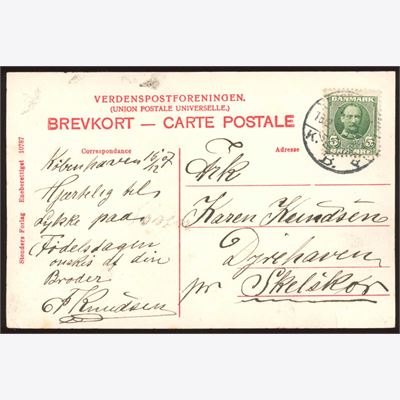 VERDENSPOSTFORENINGEN.
(UNION POSTALE UNIVERSELLE.)
BREVKORT — CARTE POSTALE
Correspondance
Adresse
København 16/12 07
Hjertelig til
Lykke paa
Födelsdagen
önskes af din
Broder
F Knudsen
Frk
Karen Knudsen
Dyrehaven
pr Skelskør
DANMARK
5 ØRE 5
K.
B.
Stenders Forlag Eneberettiget 10787